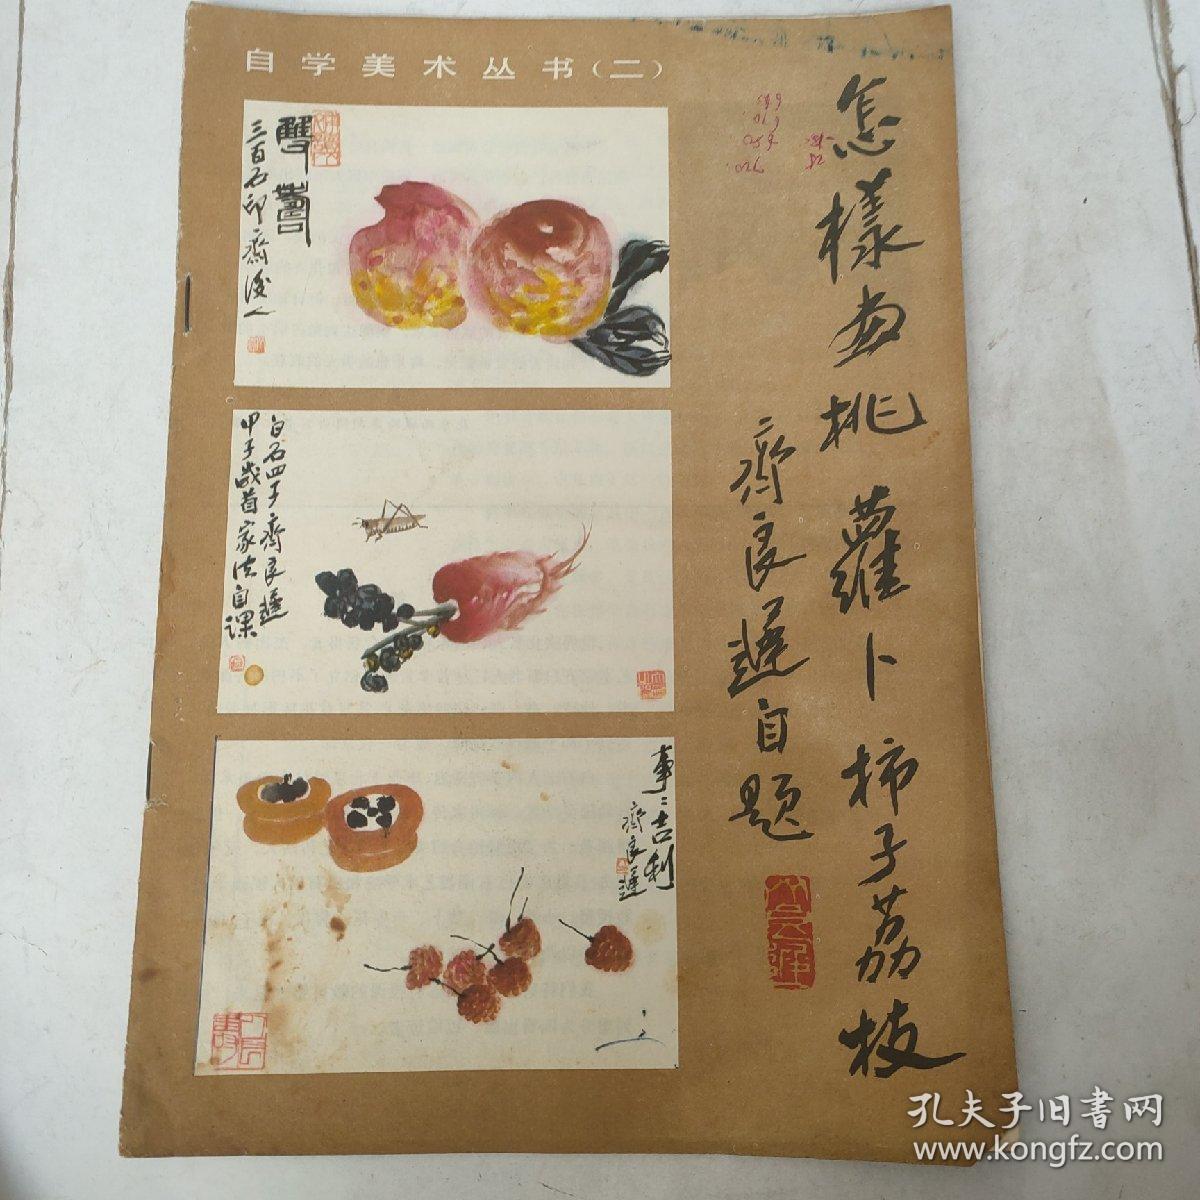 自学美术丛书（二）
怎樣画桃 蘿卜 柿子荔枝
齊良遲自題
雙壽
三百石印齋後人
白石四子齊良遲
甲子歲首家法自課
事事吉利
齊良遲
孔夫子旧书网
www.kongfz.com